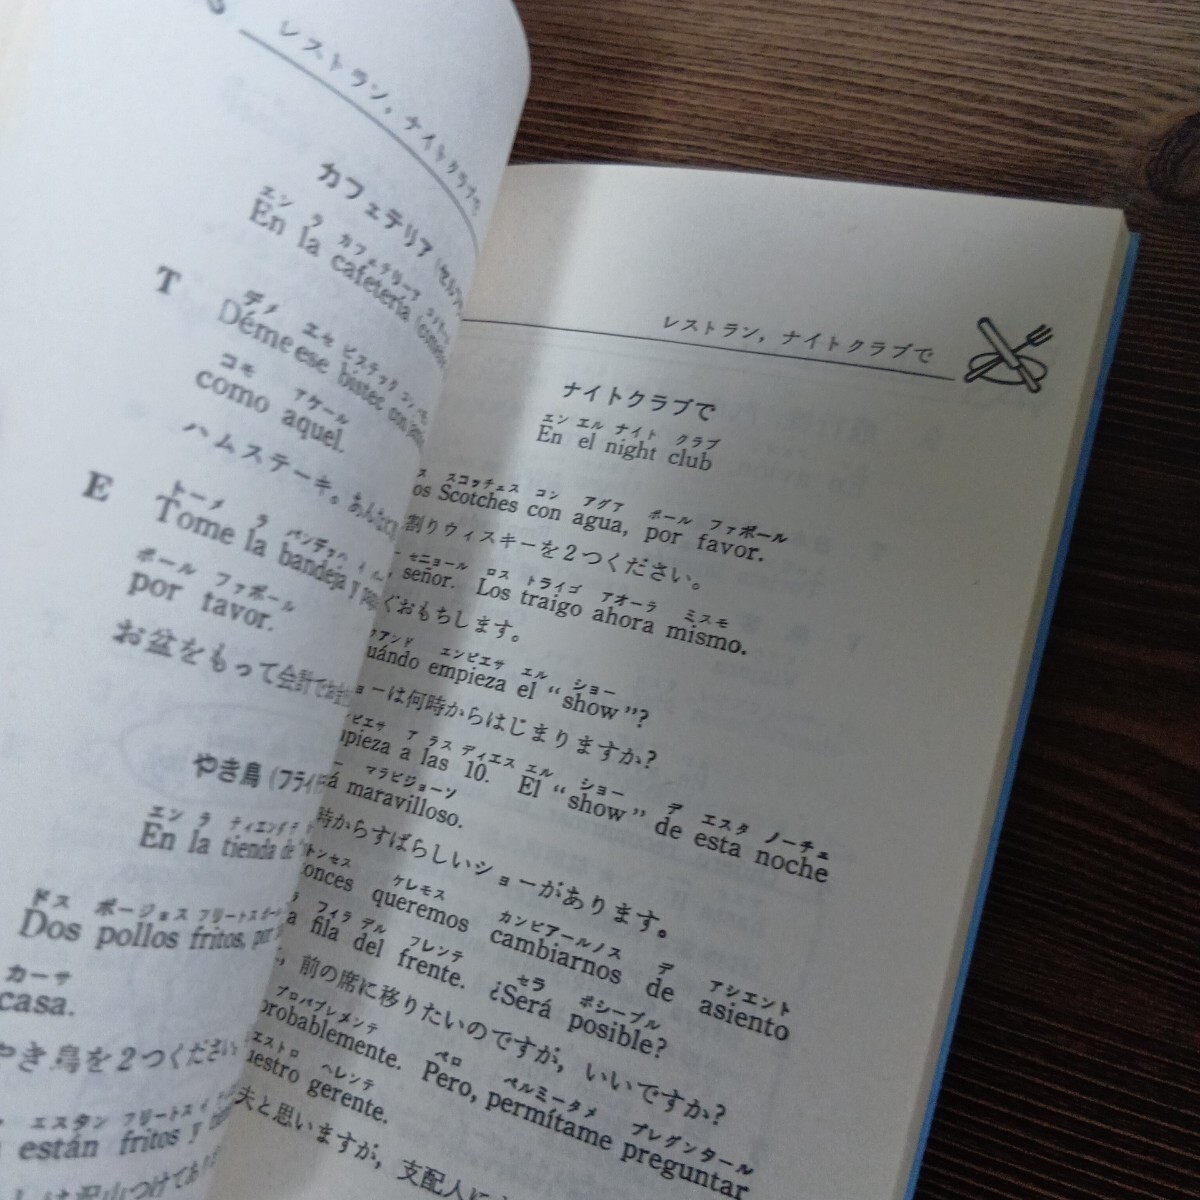 レストラン，ナイトクラブで
カフェテリア（セルフ
エン ラ カフェテリーア
En la cafetería
デメ エセ ビステック コン
T Déme ese bistec con
コモ アケール
como aquel.
ハムステーキ。あんな
トーメ ラ バンデッハ イ
E Tome la bandeja y
ポール ファボール
por favor.
お盆をもって会計でお
やき鳥（フライド
エン ラ ティエンダ デ
En la tienda de
ドス ポージョス フリートス ポー
Dos pollos fritos, por
カーサ
casa.
やき鳥を2つください
エスタン フリートス イ
están fritos y
レストラン，ナイトクラブで
ナイトクラブで
エン エル ナイト クラブ
En el night club
ス スコッチェス コン アグア ポール ファボール
os Scotches con agua, por favor.
割りウィスキーを2つください。
セニョール ロス トライゴ アオーラ ミスモ
señor. Los traigo ahora mismo.
ぐおもちします。
クアンド エンピエサ エル ショー
uándo empieza el “show”?
ョーは何時からはじまりますか?
ピエサ ア ラス ディエス エル ショー デ エスタ ノーチェ
pieza a las 10. El “show” de esta noche
マラビジョーソ
á maravilloso.
時からすばらしいショーがあります。
トンセス ケレモス カンビアールノス デ アシエント
onces queremos cambiarnos de asiento
ラ フィラ デル フレンテ セラ ポシーブル
a fila del frente. ¿Será posible?
，前の席に移りたいのですが，いいですか?
プロバブレメンテ ペロ ペルミータメ プレグンタール
probablemente. Pero, permítame preguntar
エストロ ヘレンテ
uestro gerente.
夫と思いますが，支配人に